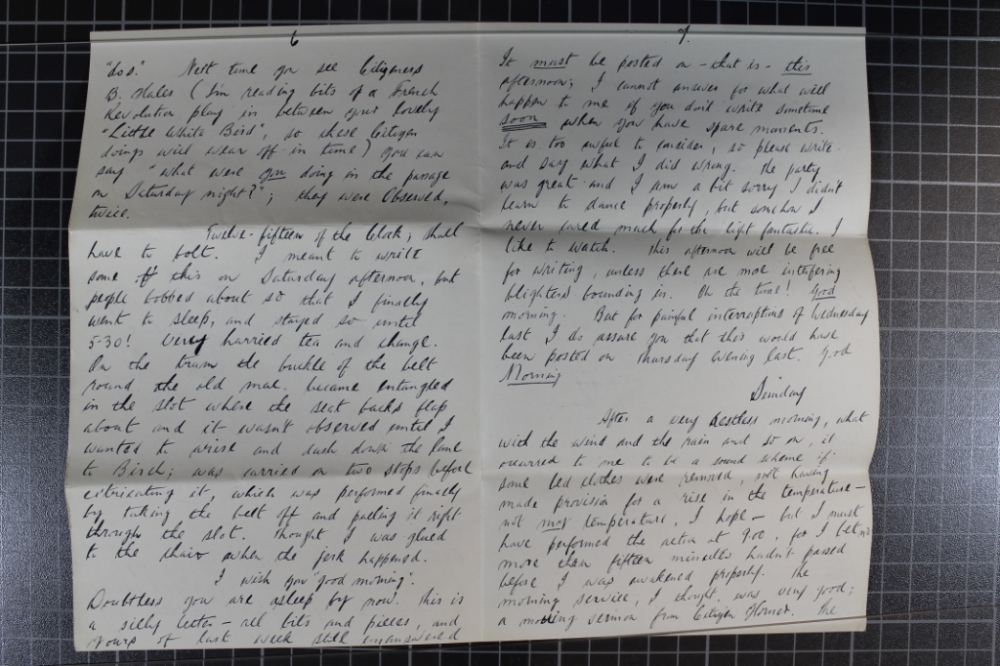 6
"dos". Next time you see Citizeness
B. Males (I'm reading bits of a French
Revolution play in between your lovely
"Little White Bird", so these Citizen
doings will wear off in time) you can
say "what were you doing in the passage
on Saturday night?"; they were observed,
twice.
Twelve-fifteen of the clock; shall
have to bolt. I meant to write
some of this on Saturday afternoon, but
people bobbed about so that I finally
went to sleep, and stayed so until
5-30! Very hurried tea and change.
On the tram the buckle of the belt
round the old mac. became entangled
in the slot where the seat backs flap
about and it wasn't observed until I
wanted to arise and dash down the lane
to Birch; was carried on two stops before
extricating it, which was performed finally
by taking the belt off and pulling it right
through the slot. Thought I was glued
to the chair when the jerk happened.
I wish you 'good morning'.
Doubtless you are asleep by now. This is
a silly letter – all bits and pieces, and
yours of last week still unanswered
7.
It must be posted on – that is – this
afternoon; I cannot answer for what will
happen to me if you don't write sometime
soon when you have spare moments.
It is too awful to consider, so please write
and say what I did wrong. The party
was great and I am a bit sorry I didn't
learn to dance properly, but somehow I
never cared much for the light fantastic. I
like to watch. This afternoon will be free
for writing, unless there are more interfering
blighters bounding in. Oh the time! Good
morning. But for painful interruptions of Wednesday
last I do assure you that this would have
been posted on Thursday evening last. Good
Morning
Sunday
After a very restless morning, what
with the wind and the rain and so on, it
occurred to me to be a sound scheme if
some bed clothes were removed, not having
made provision for a rise in the temperature –
not my temperature, I hope – but I must
have performed the action at 9oc, for I bet
more than fifteen minutes hadn't passed
before I was awakened properly. The
morning service, I thought, was very good;
a moving sermon from Citizen Horner. The